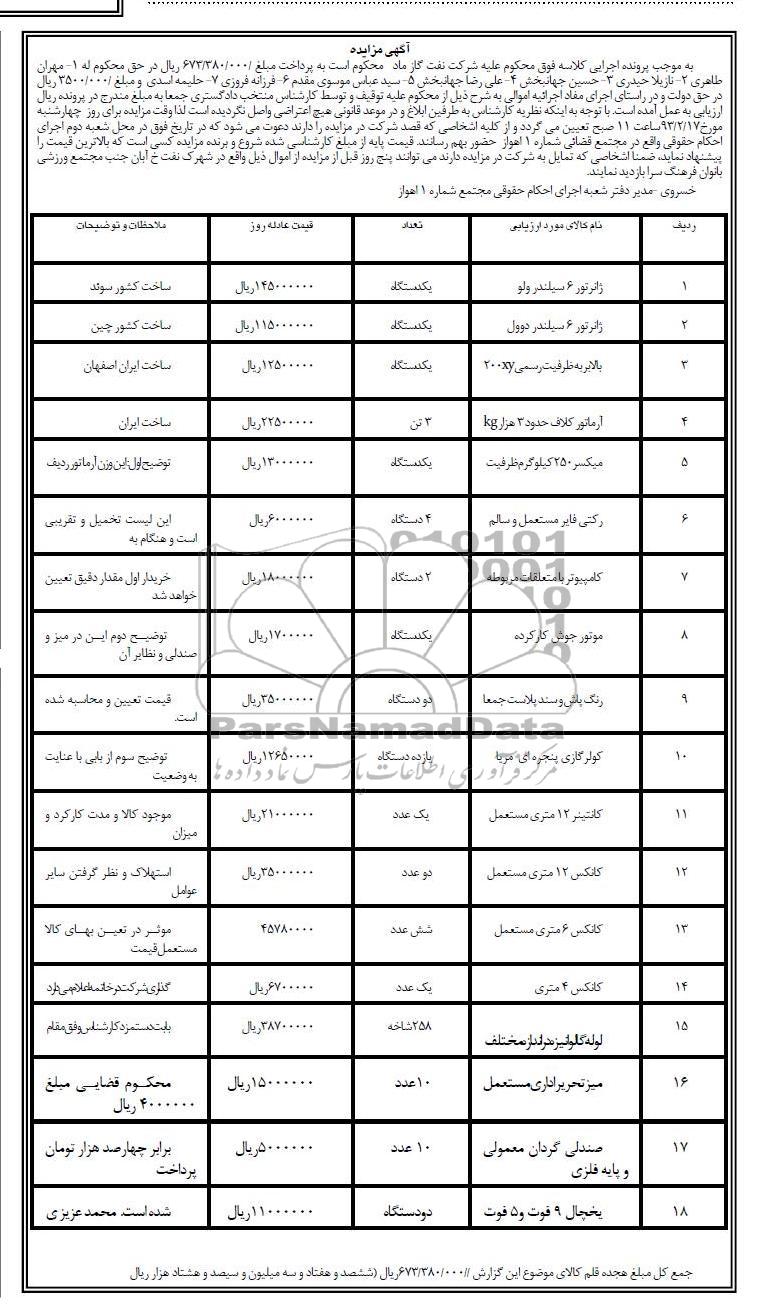 آگهی مزایده
به موجب پرونده اجرایی کلاسه فوق محکوم علیه شرکت نفت گاز ماد محکوم است به پرداخت مبلغ /۶۷۳/۳۸۰/۰۰۰ ریال در حق محکوم له ۱- مهران
طاهری ۲- نازیلا حیدری ۳- حسین جهانبخش ۴- علی رضا جهانبخش ۵- سید عباس موسوی مقدم ۶- فرزانه فروزی ۷- حلیمه اسدی و مبلغ /۳۵۰۰/۰۰۰ ریال
در حق دولت و در راستای اجرای مفاد اجرائیه اموالی به شرح ذیل از محکوم علیه توقیف و توسط کارشناس منتخب دادگستری جمعا به مبلغ مندرج در پرونده ریال
ارزیابی به عمل آمده است. با توجه به اینکه نظریه کارشناس به طرفین ابلاغ و در موعد قانونی هیچ اعتراضی واصل نگردیده است لذا وقت مزایده برای روز چهارشنبه
مورخ۹۳/۲/۱۷ساعت ۱۱ صبح تعیین می گردد و از کلیه اشخاصی که قصد شرکت در مزایده را دارند دعوت می شود که در تاریخ فوق در محل شعبه دوم اجرای
احکام حقوقی واقع در مجتمع قضائی شماره ۱ اهواز حضور بهم رسانند. قیمت پایه از مبلغ کارشناسی شده شروع و برنده مزایده کسی است که بالاترین قیمت را
پیشنهاد نماید، ضمنا اشخاصی که تمایل به شرکت در مزایده دارند می توانند پنج روز قبل از مزایده از اموال ذیل واقع در شهرک نفت خ آبان جنب مجتمع ورزشی
بانوان فرهنگ سرا بازدید نمایند.
خسروی -مدیر دفتر شعبه اجرای احکام حقوقی مجتمع شماره ۱ اهواز
ردیف نام کالای مورد ارزیابی تعداد قیمت عادله روز ملاحظات و توضیحات
۱ ژانر تور ۶ سیلندر ولو یکدستگاه ۱۴۵۰۰۰۰۰۰ریال ساخت کشور سوئد
۲ ژانر تور ۶ سیلندر دوول یکدستگاه ۱۱۵۰۰۰۰۰۰ریال ساخت کشور چین
۳ بالابر به ظرفیت رسمی ۲۰۰xy یکدستگاه ۱۲۵۰۰۰۰۰ریال ساخت ایران اصفهان
۴ آرماتور کلاف حدود ۳ هزار kg ۳ تن ۲۲۵۰۰۰۰۰ریال ساخت ایران
۵ میکسر ۲۵۰کیلوگرم ظرفیت یکدستگاه ۱۳۰۰۰۰۰۰ریال توضیح اول: این وزن آرماتور ردیف
۶ رکتی فایر مستعمل و سالم ۴ دستگاه ۶۰۰۰۰۰۰ریال این لیست تخمیل و تقریبی
است و هنگام به
۷ کامپیوتر با متعلقات مربوطه ۲ دستگاه ۱۸۰۰۰۰۰۰ریال خریدار اول مقدار دقیق تعیین
خواهد شد
۸ موتور جوش کارکرده یکدستگاه ۱۷۰۰۰۰۰ریال توضیح دوم این در میز و
صندلی و نظایر آن
۹ رنگ پاش و سند پلاست جمعا دو دستگاه ۳۵۰۰۰۰۰۰ریال قیمت تعیین و محاسبه شده
است.
۱۰ کولر گازی پنجره ای مربا یازده دستگاه ۱۲۶۵۰۰۰۰ریال توضیح سوم از بابی با عنایت
به وضعیت
۱۱ کانتینر ۱۲ متری مستعمل یک عدد ۲۱۰۰۰۰۰۰ریال موجود کالا و مدت کارکرد و
میزان
۱۲ کانکس ۱۲ متری مستعمل دو عدد ۳۵۰۰۰۰۰۰ریال استهلاک و نظر گرفتن سایر
عوامل
۱۳ کانکس ۶ متری مستعمل شش عدد ۴۵۷۸۰۰۰۰ موثر در تعین بهای کالا
مستعمل قیمت
۱۴ کانکس ۴ متری یک عدد ۶۷۰۰۰۰۰ریال گذاری شرکت در خاتمه اعلام می دارد
۱۵ لوله گالوانیزه در اندازه مختلف ۲۵۸شاخه ۳۸۷۰۰۰۰۰ریال بابت دستمزد کارشناس وفق مقام
۱۶ میز تحریر اداری مستعمل ۱۰عدد ۱۵۰۰۰۰۰۰ریال محکوم قضایی مبلغ
۴۰۰۰۰۰۰ ریال
۱۷ صندلی گردان معمولی ۱۰ عدد ۵۰۰۰۰۰۰ریال برابر چهارصد هزار تومان
و پایه فلزی پرداخت
۱۸ یخچال ۹ فوت و۵ فوت دودستگاه ۱۱۰۰۰۰۰۰ریال شده است. محمد عزیزی
جمع کل مبلغ هجده قلم کالای موضوع این گزارش //۶۷۳/۳۸۰/۰۰۰ریال (ششصد و هفتاد و سه میلیون و سیصد و هشتاد هزار ریال
ParsNamadData
مرکز فرآوری اطلاعات پارس نماد داده ها